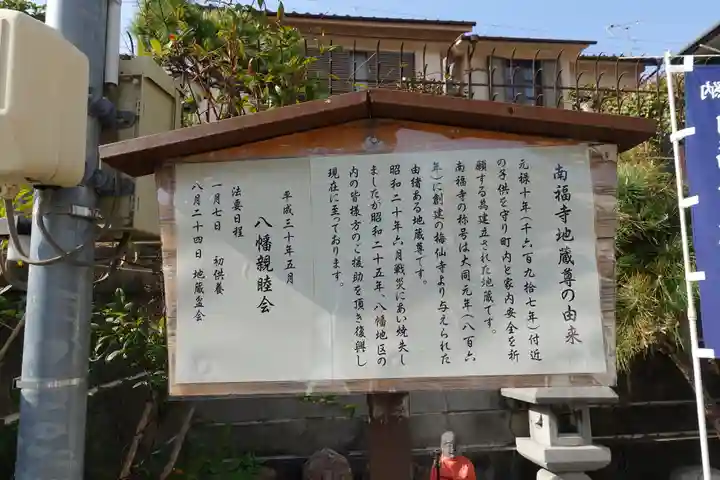 南福寺地蔵尊の由来
元禄十年(千六百九拾七年)付近
の子供を守り町内と家内安全を祈
願する為建立された地蔵です。
南福寺の称号は大同元年(八百六
年)に創建の梅仙寺より与えられた
由緒ある地蔵尊です。
昭和二十年六月戦災にあい焼失し
ましたが昭和二十五年、八幡地区の
町内の皆様方のご援助を頂き復興し
現在に至っております。
平成三十年五月
八幡親睦会
法要日程
一月七日 初供養
八月二十四日 地蔵盆会